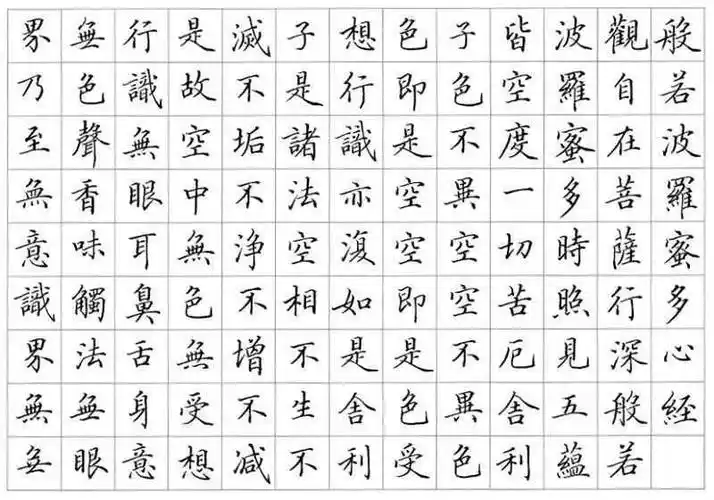 般若波羅蜜多心経
觀自在菩薩行深般若
波羅蜜多時照見五蘊
皆空度一切苦厄舍利
子色不異空空不異色
色即是空空即是色受
想行識亦復如是舍利
子是諸法空相不生不
滅不垢不浄不增不減
是故空中無色無受想
行識無眼耳鼻舌身意
無色聲香味觸法無眼
界乃至無意識界無無